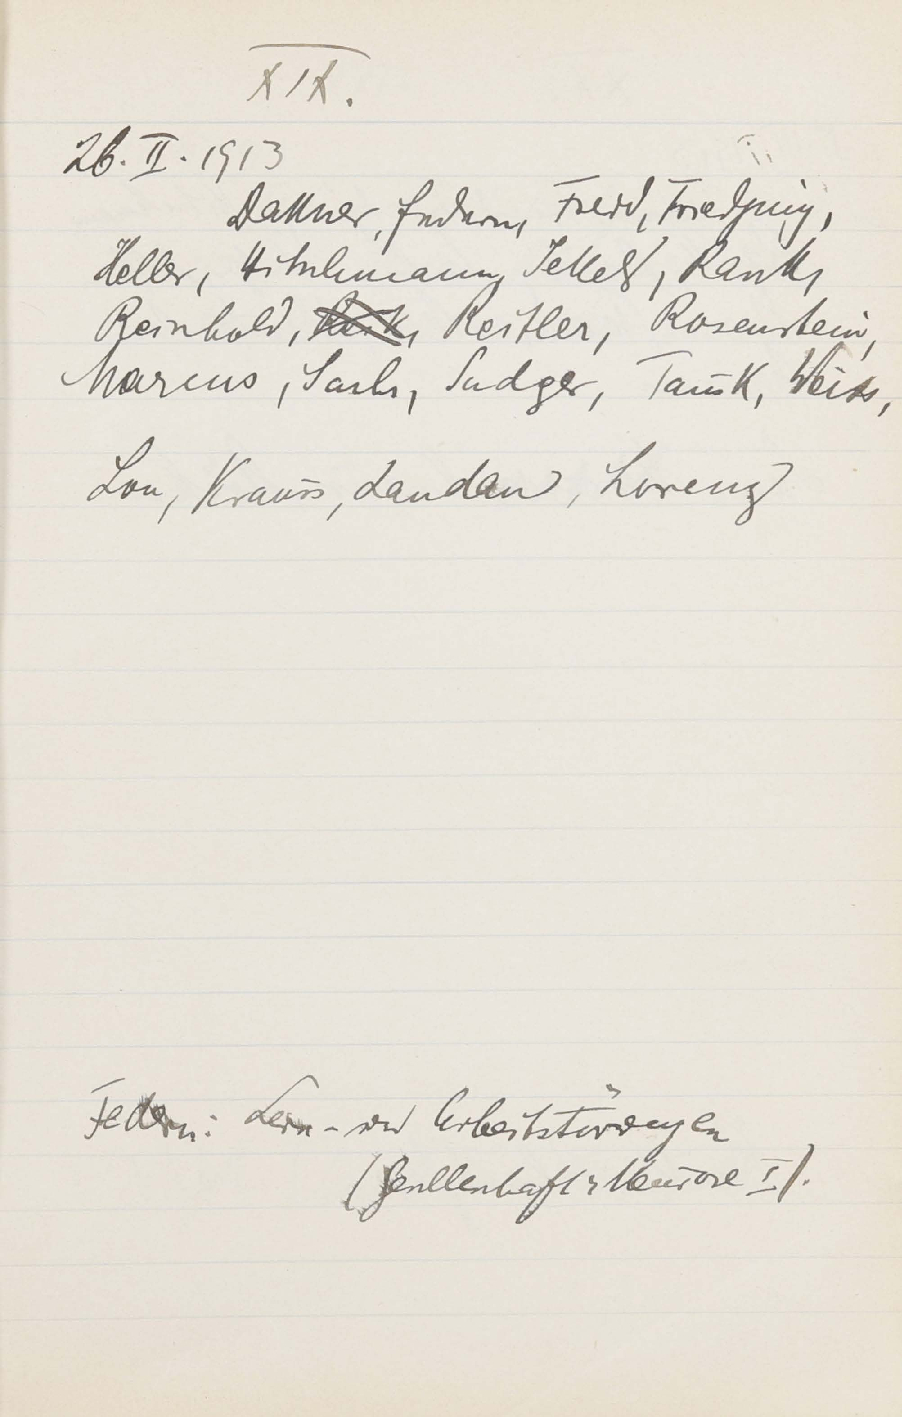 XIX.
26. II. 1913
Dattner, Federn, Freud, Friedjung,
Heller, Hitschmann, Jekels, Rank,
Reinhold, Reik, Reitler, Rosenstein,
Marcus, Sachs, Sadger, Tausk, Weiss,
Lou, Krauss, Landau, Lorenz
Federn: Lern- und Arbeitstörungen
(Gesellschaft u Neurose I).